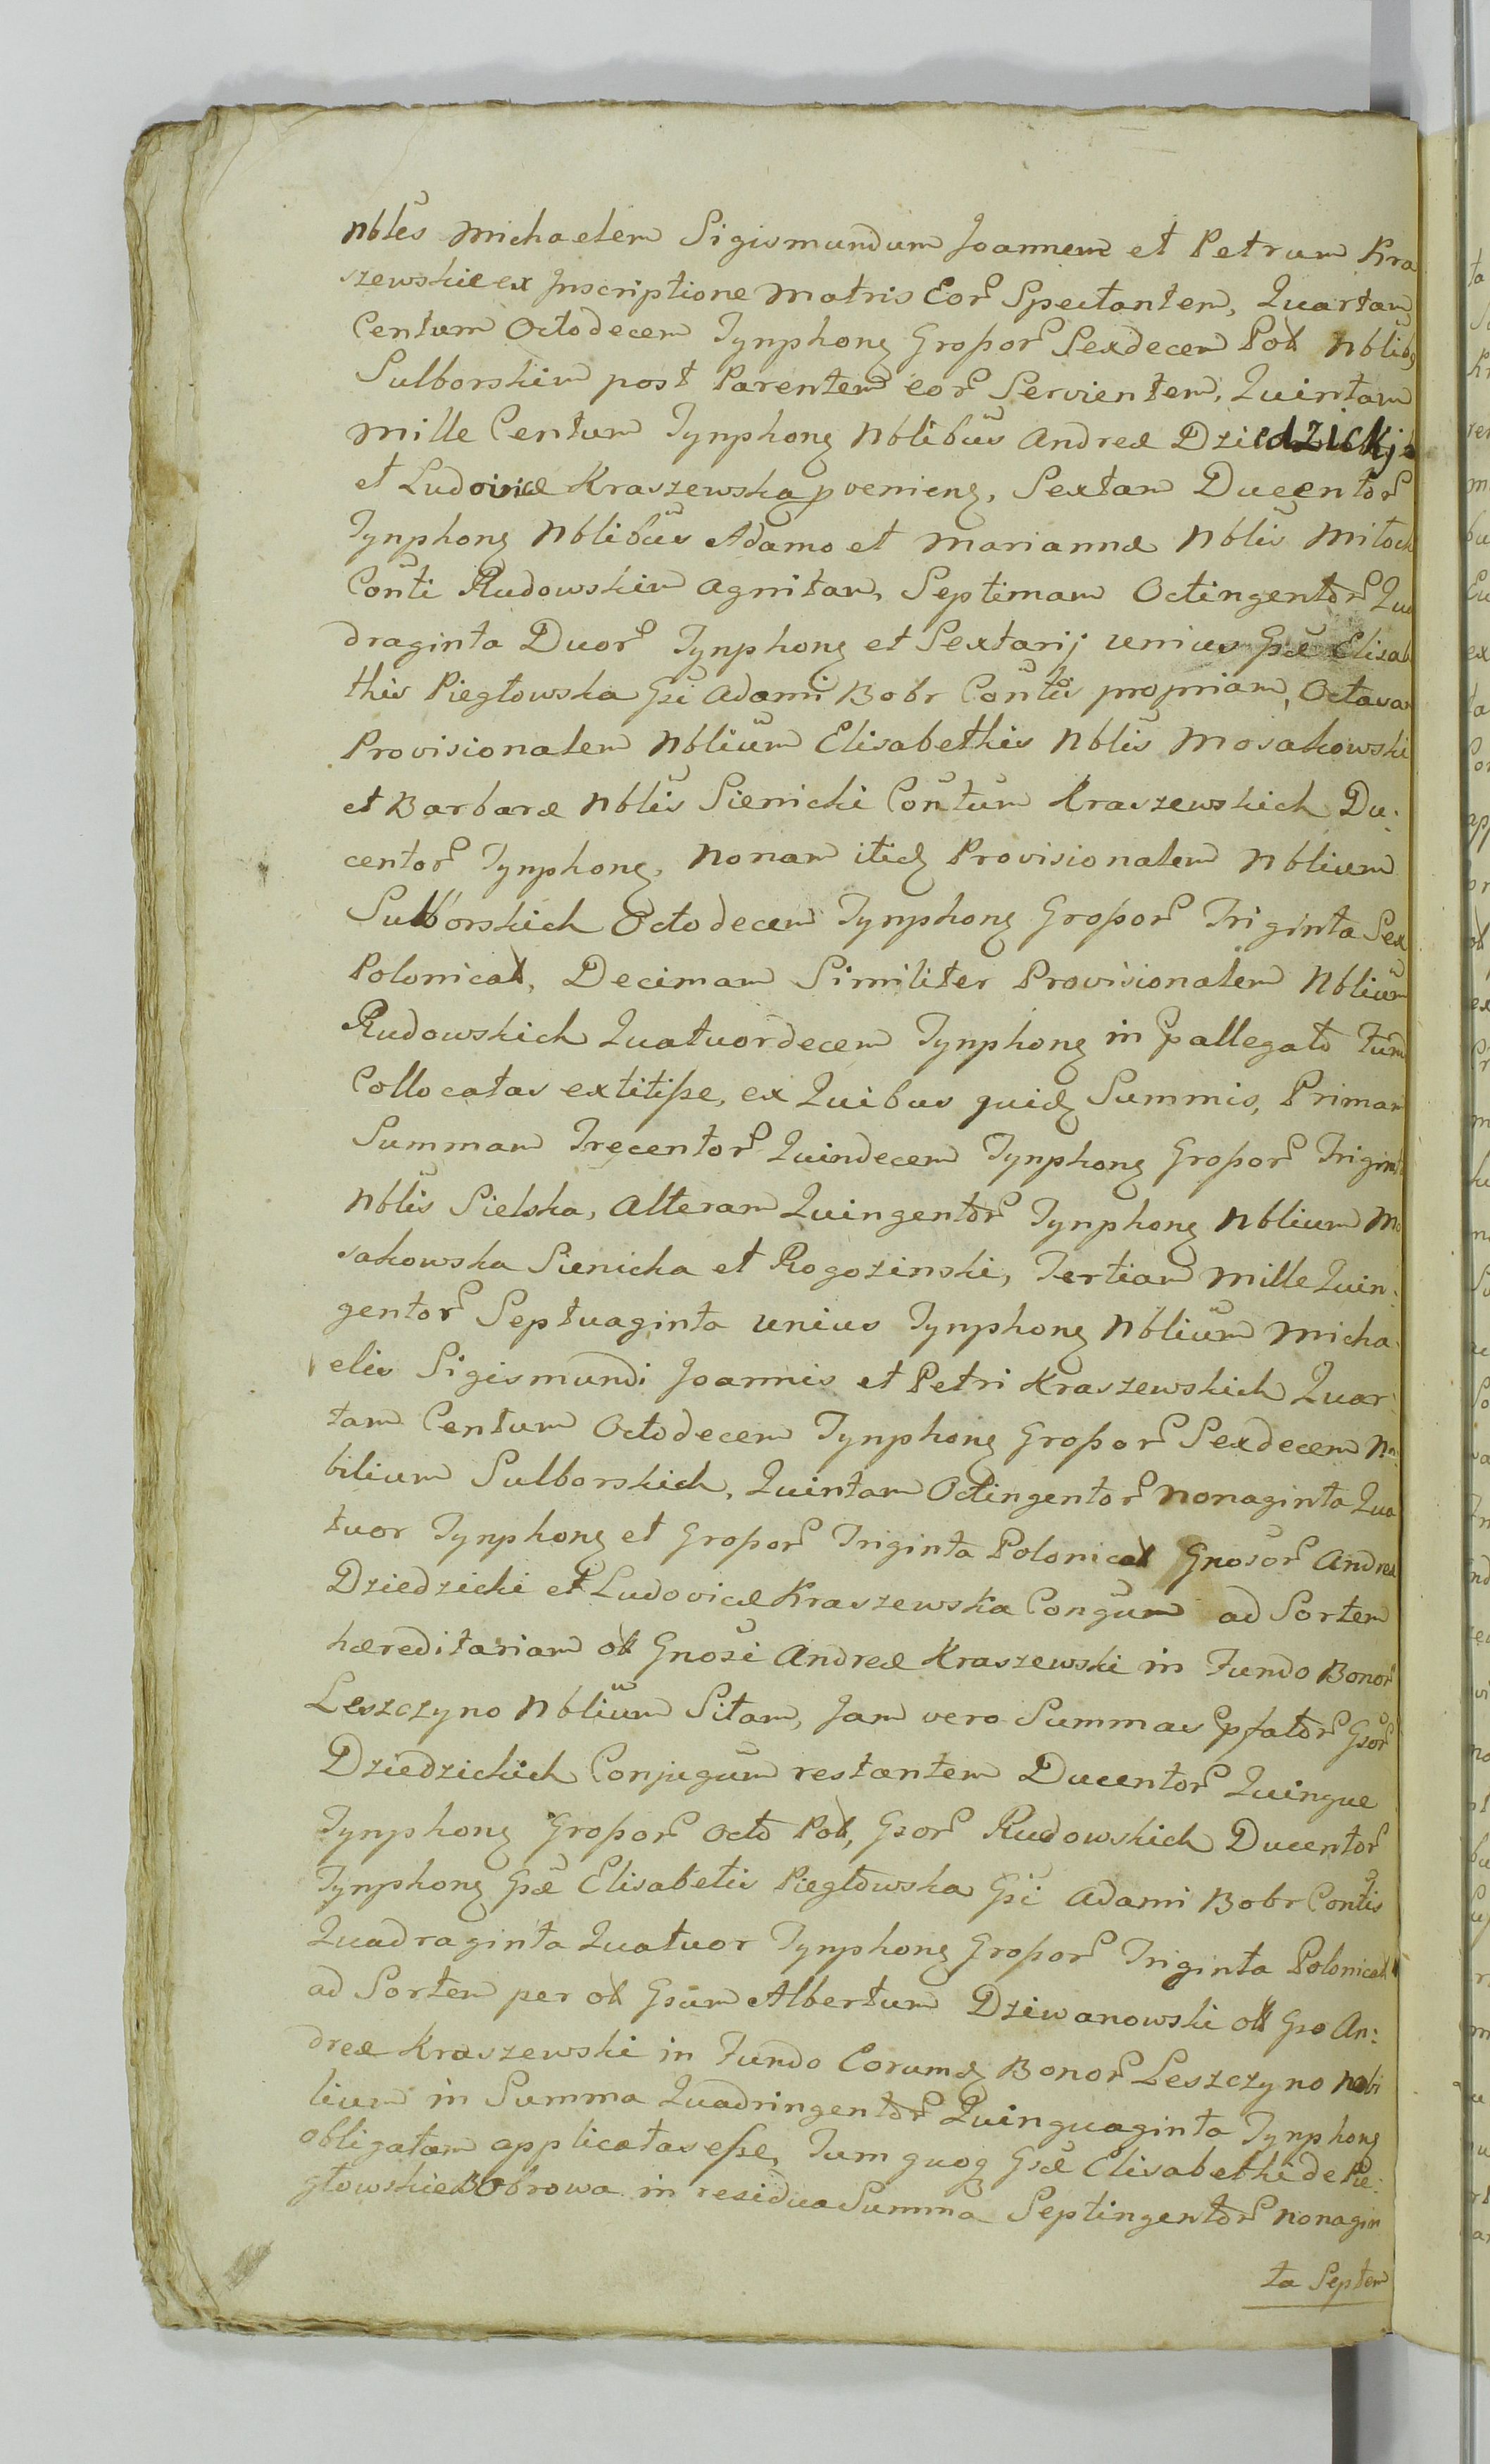 Nbles Michaelem Sigismundum Joannem et Petrum Kra
szewskie ex Inscriptione Matris Eor Spectantem, Quartam
Centum Octodecem Tynphong Großor Sexdecem Pol Nblibg
Sulborskim post Parentem eor Servientem, Quintam
Mille Centum Tynphong Nblibus Andreæ Dziedzickj
et Ludovicæ Kraszewska pvenieng, Sextam Ducentor
Tynphong Nblibus Adamo et Mariannæ Nblis Miłoch
Conti Rudowskim agnitam, Septimam Octingentor Qua
draginta Duor Tynphong et Sextarij unius Gsæ Elisab
this Piegłowska Gsi Adami Bobr Contis propriam, Octavam
Provisionalem Nblium Elisabethis Nblis Mosakowski
et Barbaræ Nblis Sienicki Contum Kraszewskich Du:
centor Tynphong, Nonam itidq Provisionalem Nblium
Sulborskich Octodecem Tynphong Großor Triginta Sex
Polonical, Decimam Similiter Provisionalem Nblium
Rudowskich Quatuordecem Tynphong in pallegato Fund
Collocatas extitiße, ex Quibus quidq Summis, Primam
Summam Trecentor Quindecem Tynphong Großor Trigint
Nblis Sielska, Alteram Quingentor Tynphong Nblium Mo
sakowska Sienicka et Rogozinski, Tertiam Mille Quin:
gentor Septuaginta unius Tynphong Nblium Micha:
elis Sigismundi Joannis et Petri Kraszewskich Quar:
tam Centum Octodecem Tynphong Großor Sexdecem No:
bilium Sulborskich, Quintam Octingentor Nonaginta Qua
tuor Tynphong et Großor Triginta Polonical Gnosor Andreæ
Dziedzicki et Ludovicæ Kraszewska Congum ad Sortem
hæreditariam ol Gnosi Andreæ Kraszewski in Fundo Bonor
Leszczyno Nblium Sitam, Jam vero Summas pfator Gsor
Dziedzickich Conjugum restantem Ducentor Quinque
Tynphong Großor Octo Pol, Gsor Rudowskich Ducentor
Tynphong Gsæ Elisabetis Piegłowska Gsi Adami Bobr Contis
Quadraginta Quatuor Tynphong Großor Triginta Polonical
ad Sortem per ol Gsum Albertum Dziewanowski ol Gso An:
dreæ Kraszewski in Fundo Eorumdq Bonor Leszczyno Nobi
lium in Summa Quadringentor Quinquaginta Tynphong
obligatam applicatas eße, Tum quoq Gsæ Elisabethi de Pie:
głowskie Bobrowa in residua Summa Septingentor Nonagin
ta Septem